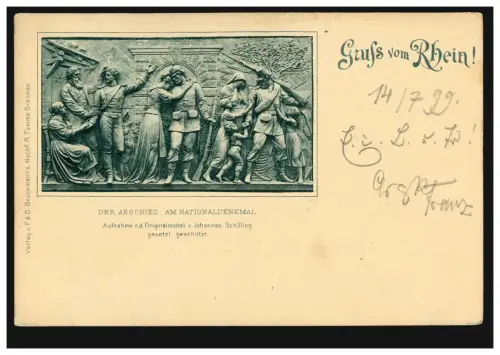 Gruß vom Rhein!
14/7 99.
DER ABSCHIED. AM NATIONALDENKMAL
Aufnahme n.d. Originalmodell v. Johannes Schilling
gesetzl. geschützt.
Verlag v. F. & O. Brockmann's Nachf. R. Tamme, Dresden.
Franz